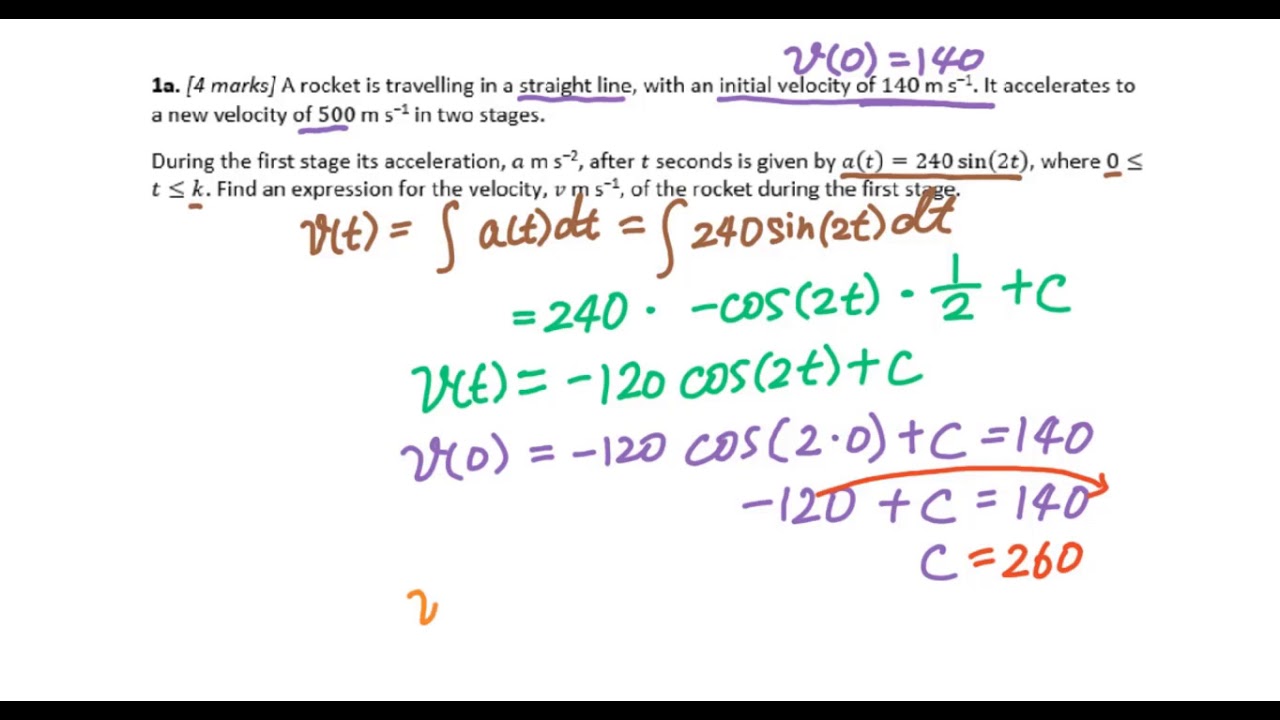 v(0) = 140
1a. [4 marks] A rocket is travelling in a straight line, with an initial velocity of 140 m s⁻¹. It accelerates to
a new velocity of 500 m s⁻¹ in two stages.
During the first stage its acceleration, a m s⁻², after t seconds is given by a(t) = 240 sin(2t), where 0 ≤
t ≤ k. Find an expression for the velocity, v m s⁻¹, of the rocket during the first stage.
v(t) = ∫ a(t)dt = ∫ 240sin(2t)dt
= 240 · -cos(2t) · 1/2 + C
v(t) = -120 cos(2t) + C
v(0) = -120 cos(2·0) + C = 140
-120 + C = 140
C = 260
v